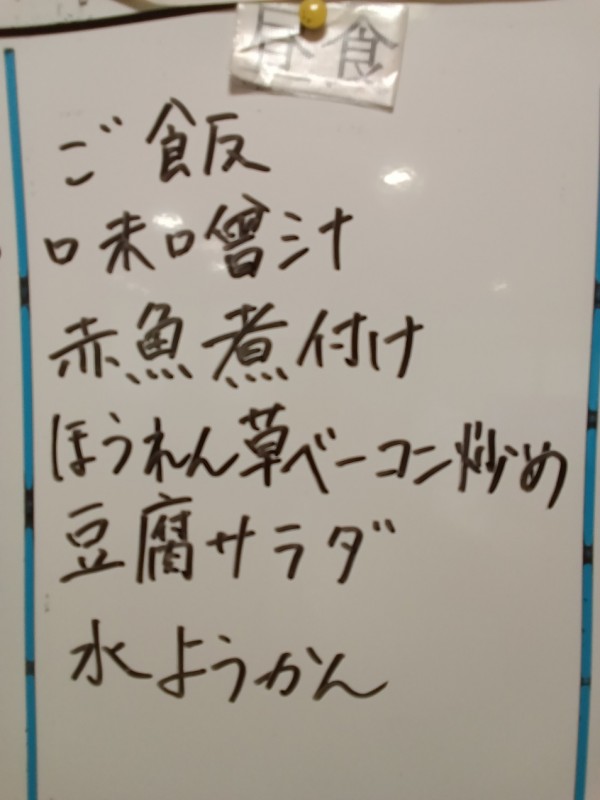 昼食
ご飯
味噌汁
赤魚煮付け
ほうれん草ベーコン炒め
豆腐サラダ
水ようかん